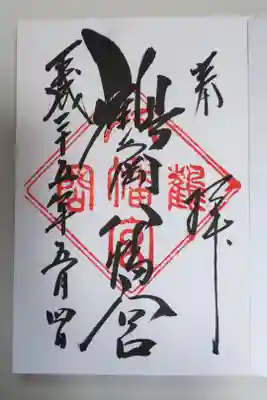 奉拝
鶴岡八幡宮
平成二十五年五月四日
鶴岡
八幡宮